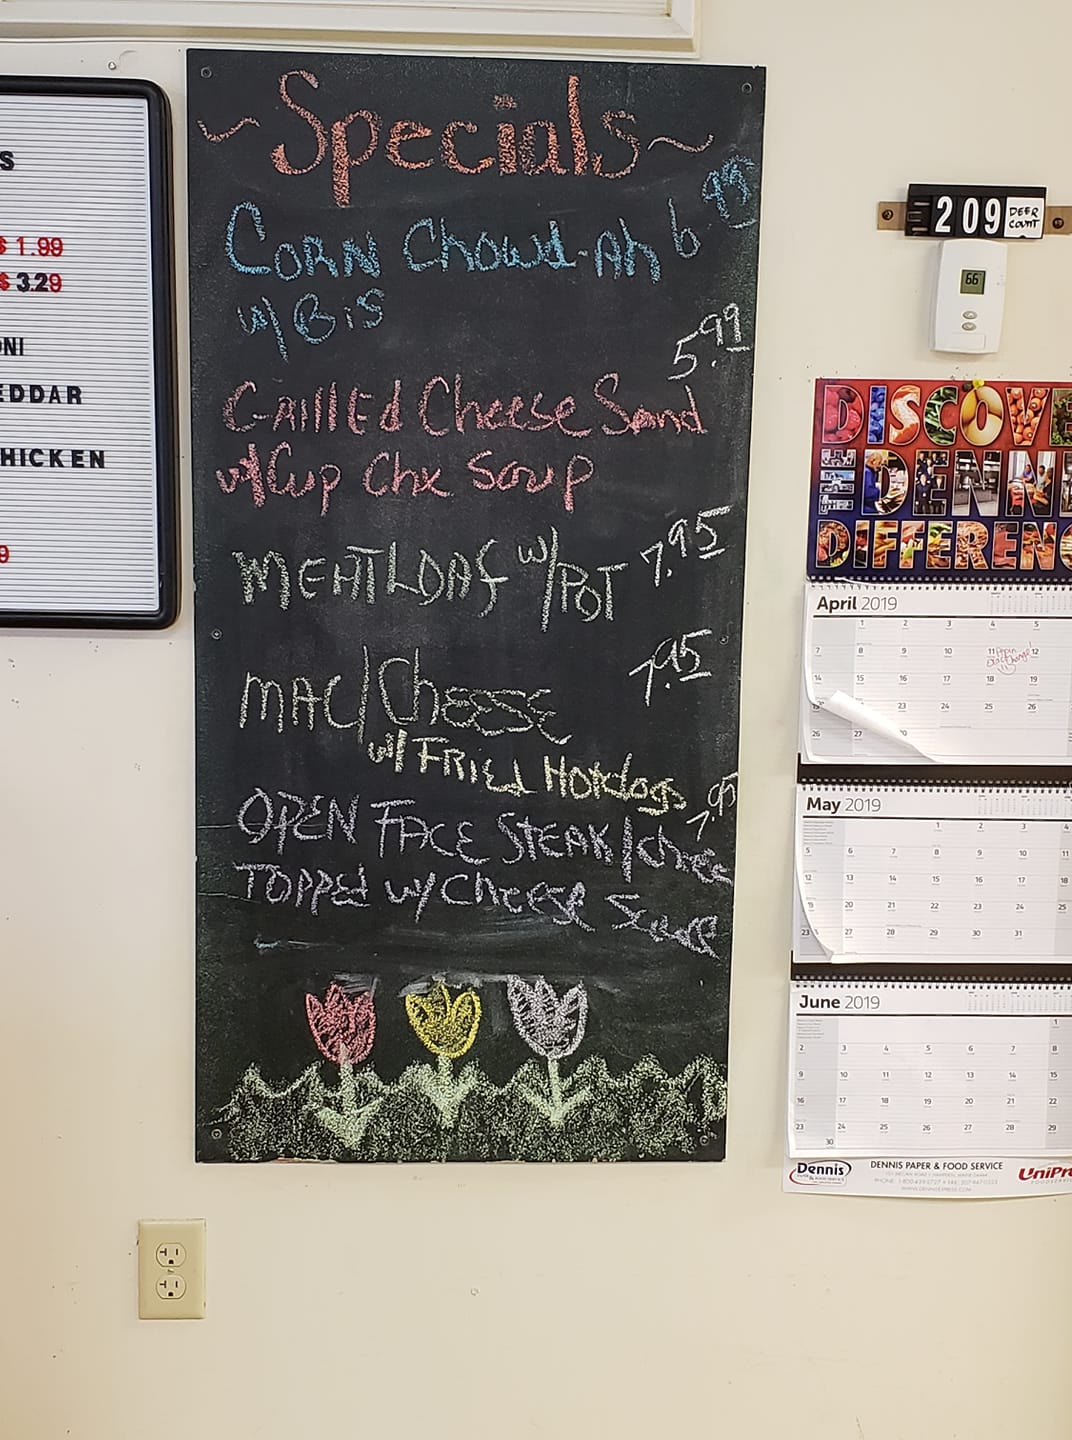 S
$ 1.99
$ 3.29
ONI
EDDAR
HICKEN
9
~ Specials ~
CORN Chowd-Ah 6.95
w/ BiS
5.99
GRillEd Cheese Sand
w/ Cup Chx Soup
MEATLOAf w/ POT 7.95
MAC/CheeSE 7.95
w/ FRiEd HotdogS
7.95
OPEN FACE STEAK/chEE
TOPPEd w/ CHEESE SauCE
209 DEER COUNT
66
DISCOVE
THE DENNI
DIFFERENC
April 2019
1 2 3 4 5
7 8 9 10 11 12
14 15 16 17 18 19
23 24 25 26
26 27
May 2019
1 2 3 4
5 6 7 8 9 10 11
12 13 14 15 16 17 18
19 20 21 22 23 24 25
27 28 29 30 31
June 2019
1
2 3 4 5 6 7 8
9 10 11 12 13 14 15
16 17 18 19 20 21 22
23 24 25 26 27 28 29
30
Dennis
DENNIS PAPER & FOOD SERVICE
UniPro
FOODSERVICE